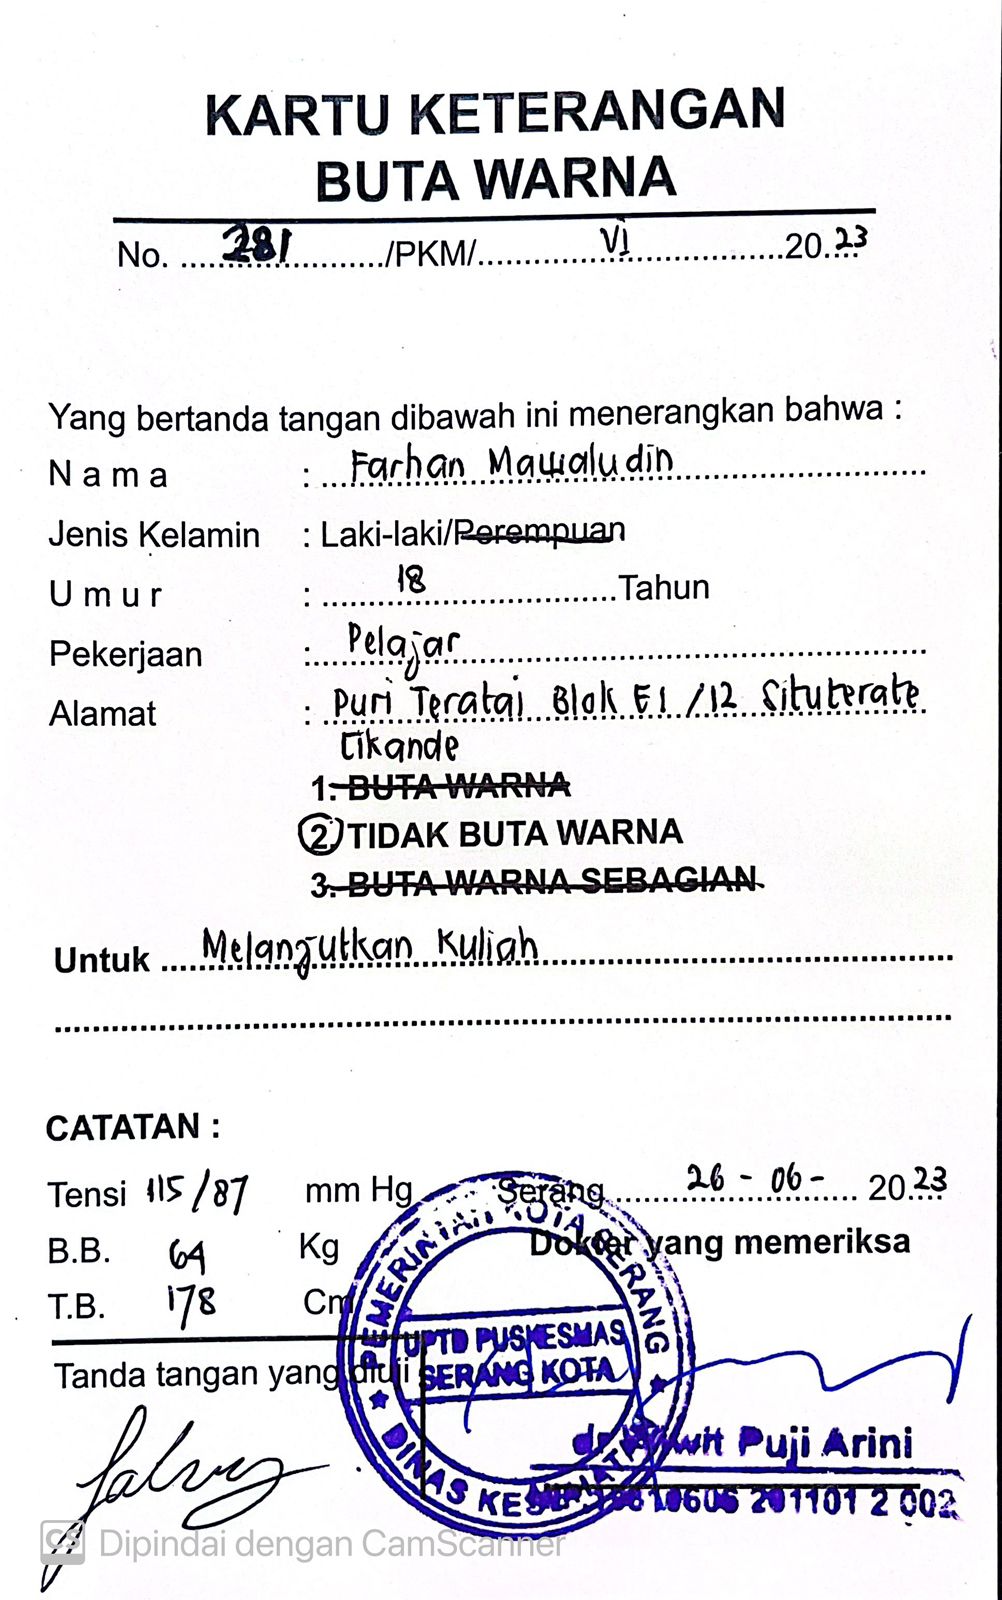 KARTU KETERANGAN
BUTA WARNA
No. 281 /PKM/ VI 2023
Yang bertanda tangan dibawah ini menerangkan bahwa :
Nama : Farhan Mawaludin
Jenis Kelamin : Laki-laki/Perempuan
Umur : 18 Tahun
Pekerjaan : Pelajar
Alamat : Puri Teratai Blok E1 /12 Situterate
Cikande
1. BUTA WARNA
2. TIDAK BUTA WARNA
3. BUTA WARNA SEBAGIAN
Untuk Melanjutkan Kuliah
CATATAN :
Tensi 115/87 mm Hg
Serang 26 - 06 - 2023
B.B. 64 Kg
Dokter yang memeriksa
T.B. 178 Cm
Tanda tangan yang diuji
PEMERINTAH KOTA SERANG
UPTD PUSKESMAS
SERANG KOTA
DINAS KESEHATAN
dr. Wiwit Puji Arini
201101 2 002
CS Dipindai dengan CamScanner